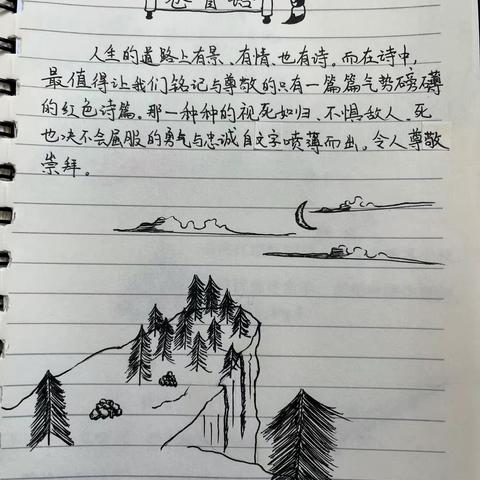 卷首语
人生的道路上有景、有情、也有诗。而在诗中,
最值得让我们铭记与尊敬的只有一篇篇气势磅礴
的红色诗篇。那一种种的视死如归、不惧敌人、死
也决不会屈服的勇气与忠诚自文字喷薄而出。令人尊敬
崇拜。